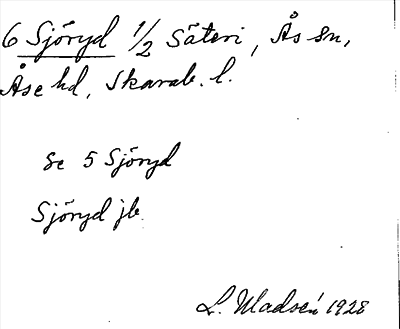 6 Sjöryd 1/2 Säteri, Ås sn,
Åse hd, Skarab. l.
Se 5 Sjöryd
Sjöryd jb
L. Madsén 1928